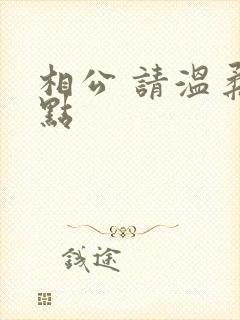 相公 請溫柔
點
錢途